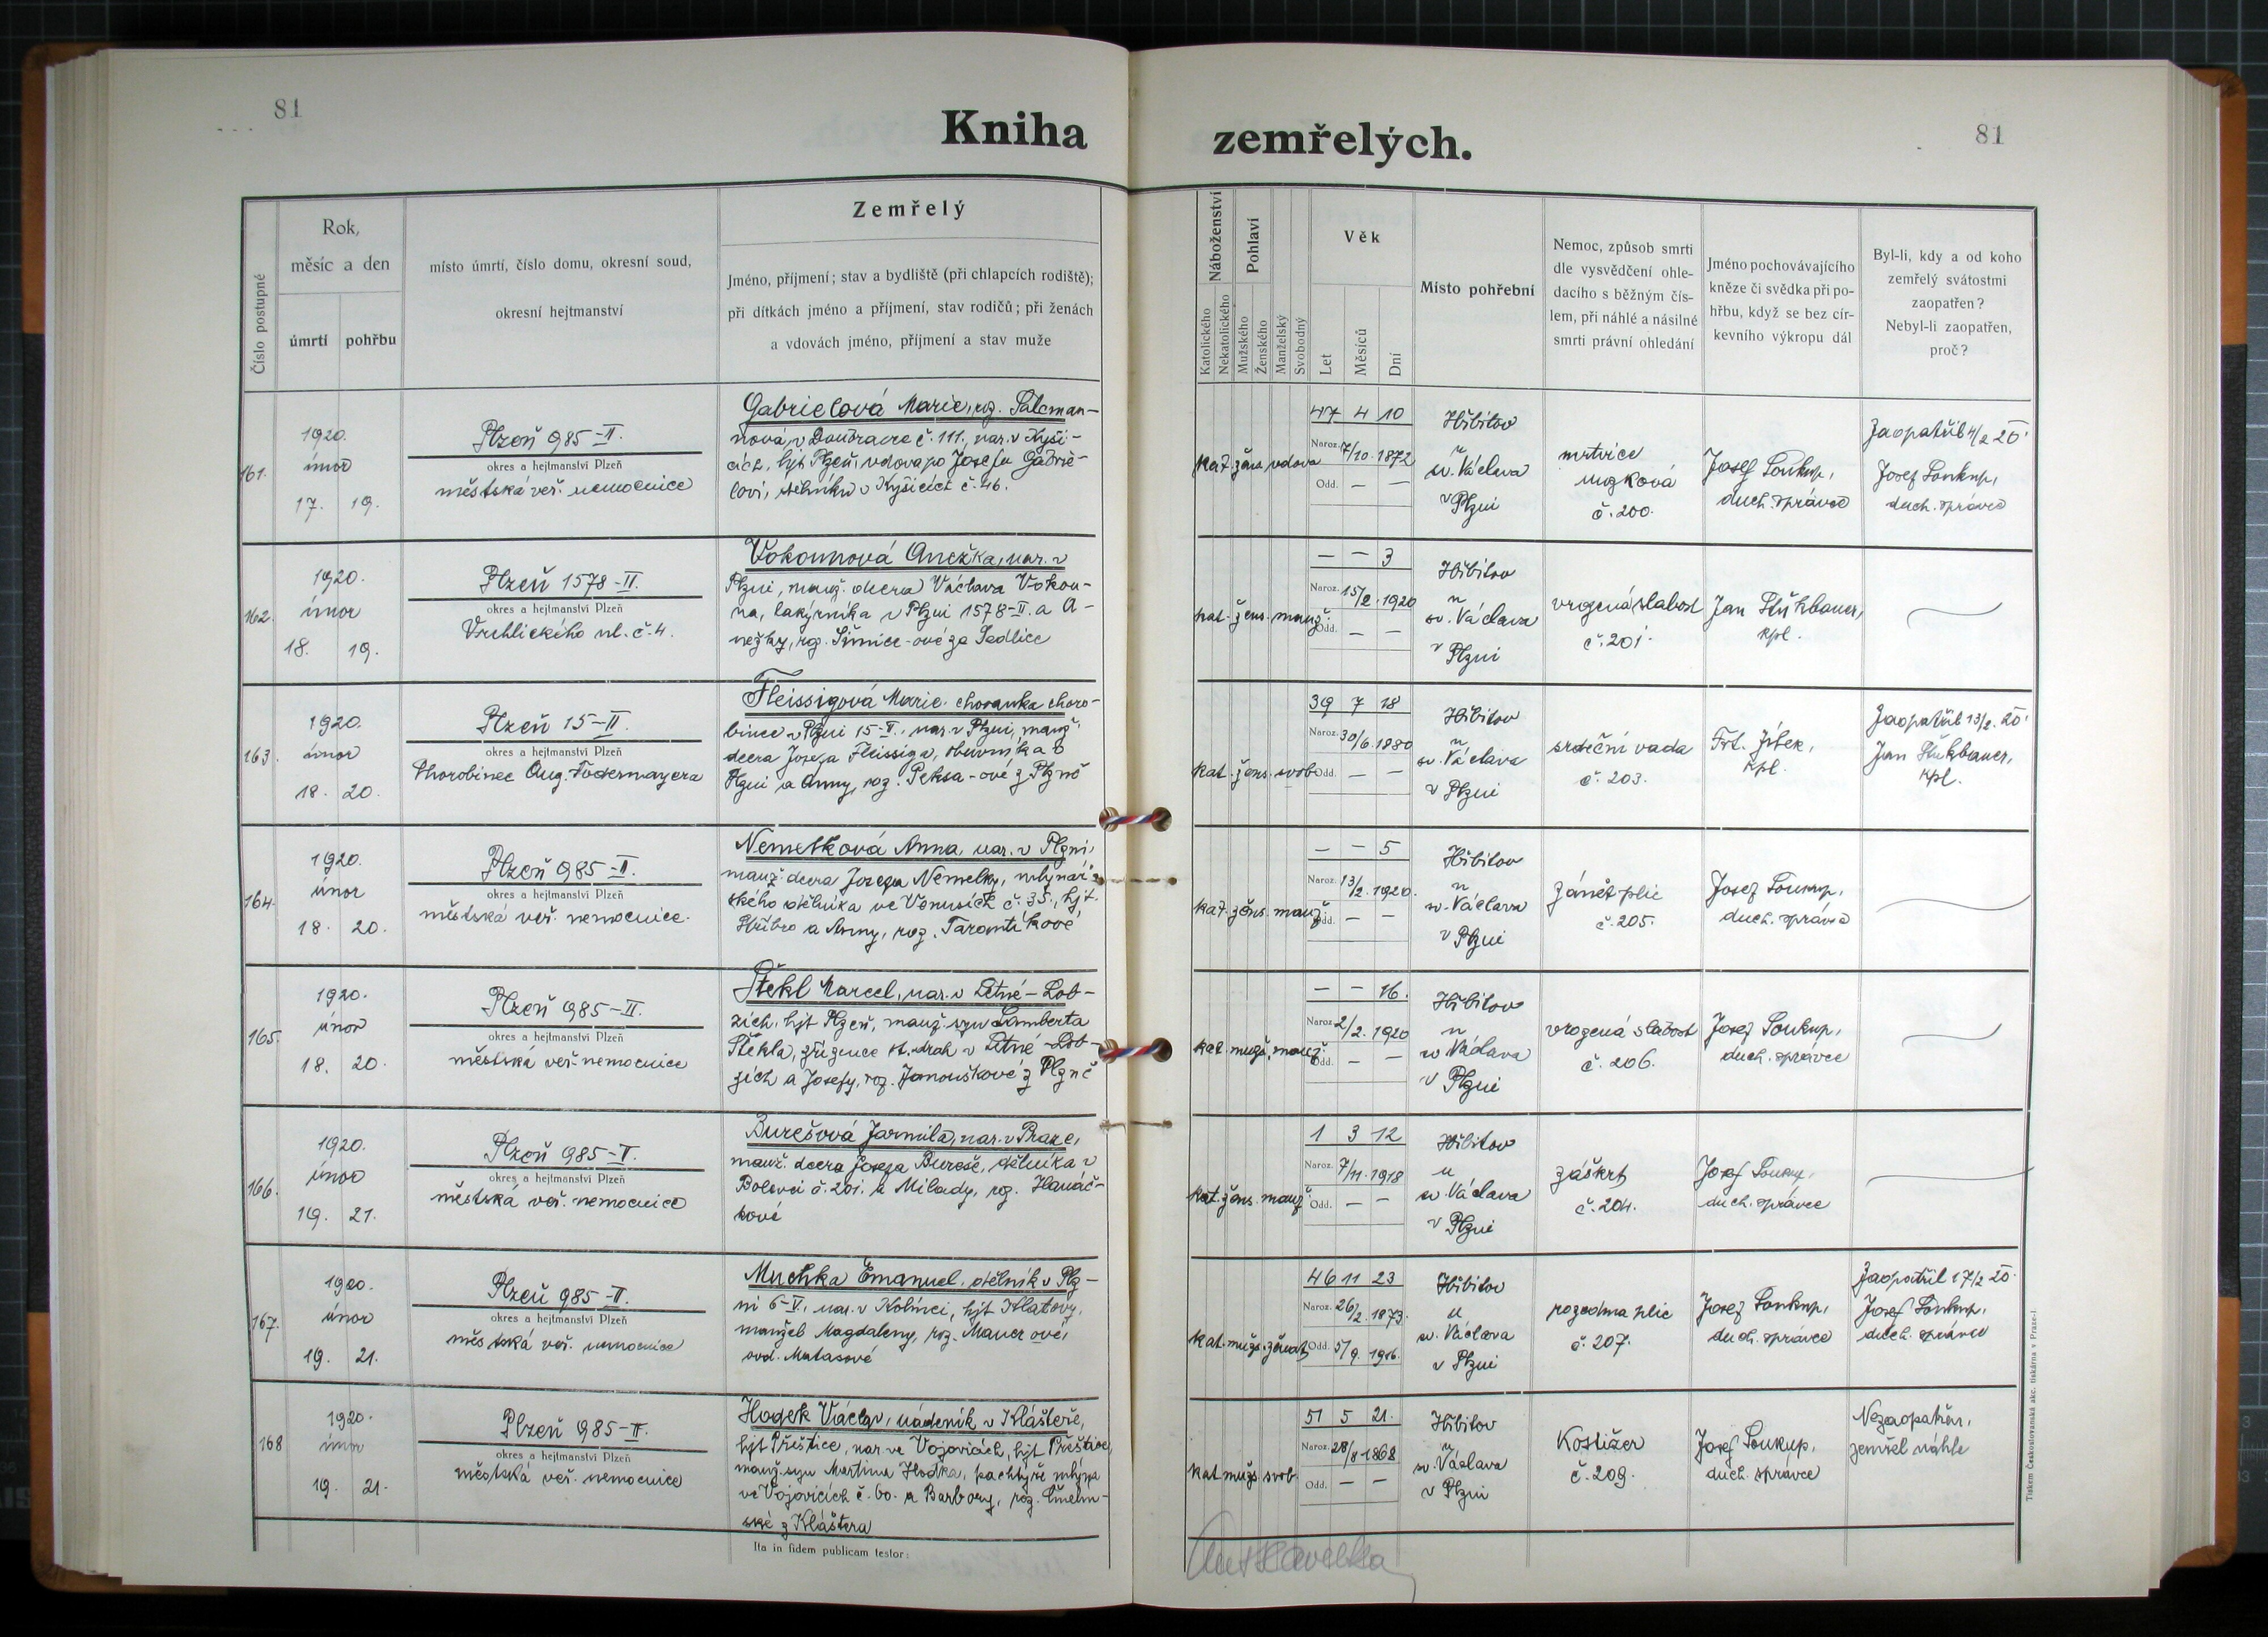 81
Kniha
zemřelých.
81
Číslo postupné
Rok,
měsíc a den
úmrtí
pohřbu
místo úmrtí, číslo domu, okresní soud,
okresní hejtmanství
Zemřelý
Jméno, příjmení; stav a bydliště (při chlapcích rodiště);
při dítkách jméno a příjmení, stav rodičů; při ženách
a vdovách jméno, příjmení a stav muže
Náboženství
Katolického
Nekatolického
Pohlaví
Mužského
Ženského
Manželský
Svobodný
Věk
Let
Měsíců
Dní
Místo pohřební
Nemoc, způsob smrti
dle vysvědčení ohle-
dacího s běžným čís-
lem, při náhlé a násilné
smrti právní ohledání
Jméno pochovávajícího
kněze či svědka při po-
hřbu, když se bez cír-
kevního výkropu dál
Byl-li, kdy a od koho
zemřelý svátostmi
zaopatřen?
Nebyl-li zaopatřen,
proč?
161.
1920.
únor
17. 19.
Plzeň 985-II.
okres a hejtmanství Plzeň
městská veř. nemocnice
Gabrielová Marie, roz. Salcman-
nová, v Doubravce č. 111., nar. v Kyši-
cích, hjt Plzeň, vdova po Josefu Gabrie-
lovi, dělníku v Kyšicích č. 46.
kat. žens. vdova
47 4 10
Naroz. 7/10. 1872
Odd. — —
Hřbitov
u
sv. Václava
v Plzni
mrtvice
mozková
č. 200.
Josef Soukup,
duch. správce
Zaopatřil 4/2 20.
Josef Soukup,
duch. správce
162.
1920.
únor
18. 19.
Plzeň 1578-II.
okres a hejtmanství Plzeň
Vrchlického ul. č. 4.
Vokounová Anežka, nar. v
Plzni, manž. dcera Václava Vokou-
na, lakýrníka v Plzni 1578-II. a A-
nežky, roz. Šimice-ové ze Sedlice
kat. žens. manž.
— — 3
Naroz. 15/2. 1920
Odd. — —
Hřbitov
u
sv. Václava
v Plzni
vrozená slabost
č. 201.
Jan
kpl.
163.
1920.
únor
18. 20.
Plzeň 15-II
okres a hejtmanství Plzeň
Chorobinec Aug. Fodermayera
Fleissigová Marie, chovanka choro-
bince v Plzni 15-II., nar. v Plzni, manž.
dcera Josefa Fleissiga, obuvníka v
Plzni a Anny, roz. Peksa-ové z Plzně
kat. žens. svob.
39 7 18
Naroz. 30/6. 1880
Odd. — —
Hřbitov
u
sv. Václava
v Plzni
srdeční vada
č. 203.
Frt. Jílek,
kpl.
Zaopatřil 13/2. 20.
Jan
kpl.
164.
1920.
únor
18. 20.
Plzeň 985-II.
okres a hejtmanství Plzeň
městská veř. nemocnice.
Nemelková Anna, nar. v Plzni,
manž. dcera Josefa Nemelky, mlynář-
ského dělníka ve Venusích č. 35., hjt.
Stříbro a Anny, roz. Tarantíkové
kat. žens. manž.
— — 5
Naroz. 13/2. 1920.
Odd. — —
Hřbitov
u
sv. Václava
v Plzni
zánět plic
č. 205.
Josef Soukup,
duch. správce
165.
1920.
únor
18. 20.
Plzeň 985-II.
okres a hejtmanství Plzeň
městská veř. nemocnice
Štekl Marcel, nar. v Letné-Lob-
zích, hjt Plzeň, manž. syn Lamberta
Štekla, zřízence st. drah v Letné-Lob-
zích a Josefy, roz. Janouškové z Plzně
kat. mužs. manž.
— — 16.
Naroz. 2/2. 1920
Odd. — —
Hřbitov
u
sv. Václava
v Plzni
vrozená slabost
č. 206.
Josef Soukup,
duch. správce
166.
1920.
únor
19. 21.
Plzeň 985-II.
okres a hejtmanství Plzeň
městská veř. nemocnice
Burešová Jarmila, nar. v Praze,
manž. dcera Josefa Bureše, dělníka v
Bolevci č. 201. a Milady, roz. Hanáč-
kové
kat. žens. manž.
1 3 12
Naroz. 7/11. 1918
Odd. — —
Hřbitov
u
sv. Václava
v Plzni
záškrt
č. 204.
Josef Soukup,
duch. správce
167.
1920.
únor
19. 21.
Plzeň 985-II.
okres a hejtmanství Plzeň
městská veř. nemocnice
Muchka Emanuel, dělník v Plz-
ni 6-V., nar. v Kolinci, hjt Klatovy,
manžel Magdaleny, roz. Mauerové,
ovd. Matasové
kat. mužs. ženat
46 11 23
Naroz. 26/2. 1873.
Odd. 5/9. 1916.
Hřbitov
u
sv. Václava
v Plzni
rozedma plic
č. 207.
Josef Soukup,
duch. správce
Zaopatřil 17/2 20.
Josef Soukup,
duch. správce
168
1920.
únor
19. 21.
Plzeň 985-II.
okres a hejtmanství Plzeň
městská veř. nemocnice
Hodek Václav, nádeník v Klášteře,
hjt Přeštice, nar. ve Vojovicích, hjt Přeštice,
manž. syn Martina Hodka, pachtýře mlýna
ve Vojovicích č. 60. a Barbory, roz.
ské z Kláštera
kat. mužs. svob.
51 5 21.
Naroz. 28/8 1868
Odd. — —
Hřbitov
u
sv. Václava
v Plzni
Kostižer
č. 209.
Josef Soukup,
duch. správce
Nezaopatřen,
zemřel náhle
Ita in fidem publicam testor:
Tiskem Československá akc. tiskárna v Praze-I.